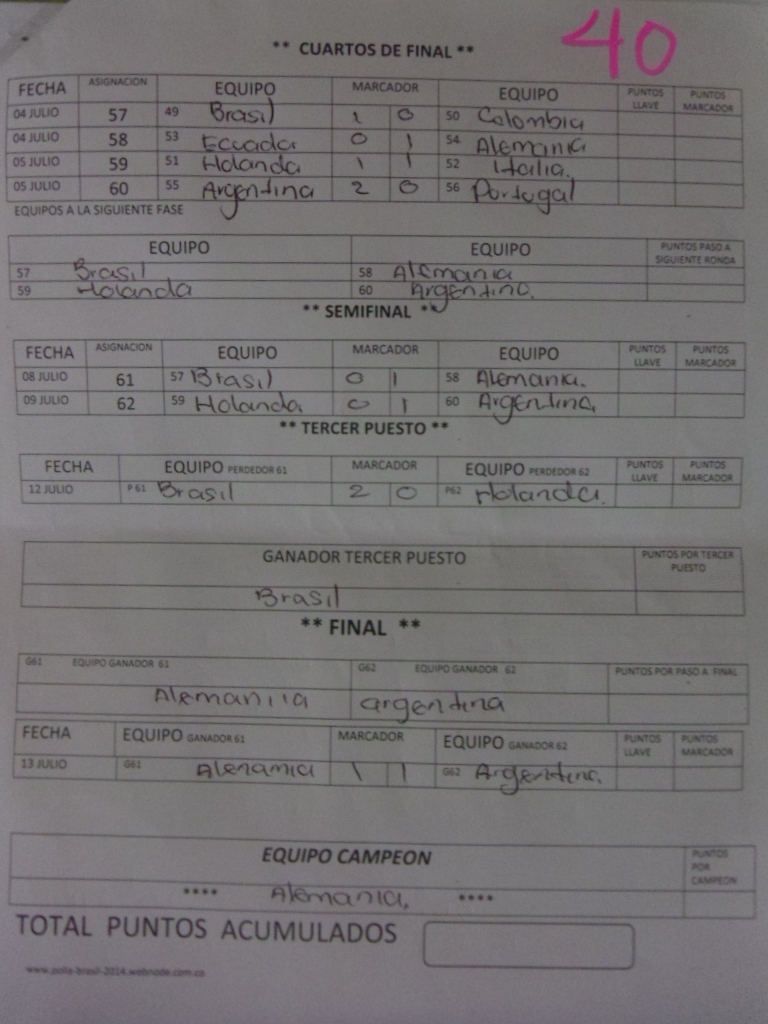 40
** CUARTOS DE FINAL **
FECHA ASIGNACION EQUIPO MARCADOR EQUIPO PUNTOS LLAVE PUNTOS MARCADOR
04 JULIO 57 49 Brasil 1 0 50 Colombia
04 JULIO 58 53 Ecuada 0 1 54 Alemania
05 JULIO 59 51 Holanda 1 1 52 Italia.
05 JULIO 60 55 Argentina 2 0 56 Portugal
EQUIPOS A LA SIGUIENTE FASE
EQUIPO EQUIPO PUNTOS PASO A SIGUIENTE RONDA
57 Brasil 58 Alemania
59 Holanda 60 Argentina.
** SEMIFINAL **
FECHA ASIGNACION EQUIPO MARCADOR EQUIPO PUNTOS LLAVE PUNTOS MARCADOR
08 JULIO 61 57 Brasil 0 1 58 Alemania.
09 JULIO 62 59 Holanda 0 1 60 Argentina.
** TERCER PUESTO **
FECHA EQUIPO PERDEDOR 61 MARCADOR EQUIPO PERDEDOR 62 PUNTOS LLAVE PUNTOS MARCADOR
12 JULIO P 61 Brasil 2 0 P62 Holanda.
GANADOR TERCER PUESTO PUNTOS POR TERCER PUESTO
Brasil
** FINAL **
G61 EQUIPO GANADOR 61 G62 EQUIPO GANADOR 62 PUNTOS POR PASO A FINAL
Alemania argentina
FECHA EQUIPO GANADOR 61 MARCADOR EQUIPO GANADOR 62 PUNTOS LLAVE PUNTOS MARCADOR
13 JULIO G61 Alemania 1 1 G62 Argentina.
EQUIPO CAMPEON PUNTOS POR CAMPEON
**** Alemania. ****
TOTAL PUNTOS ACUMULADOS
www.polla-brasil-2014.webnode.com.co